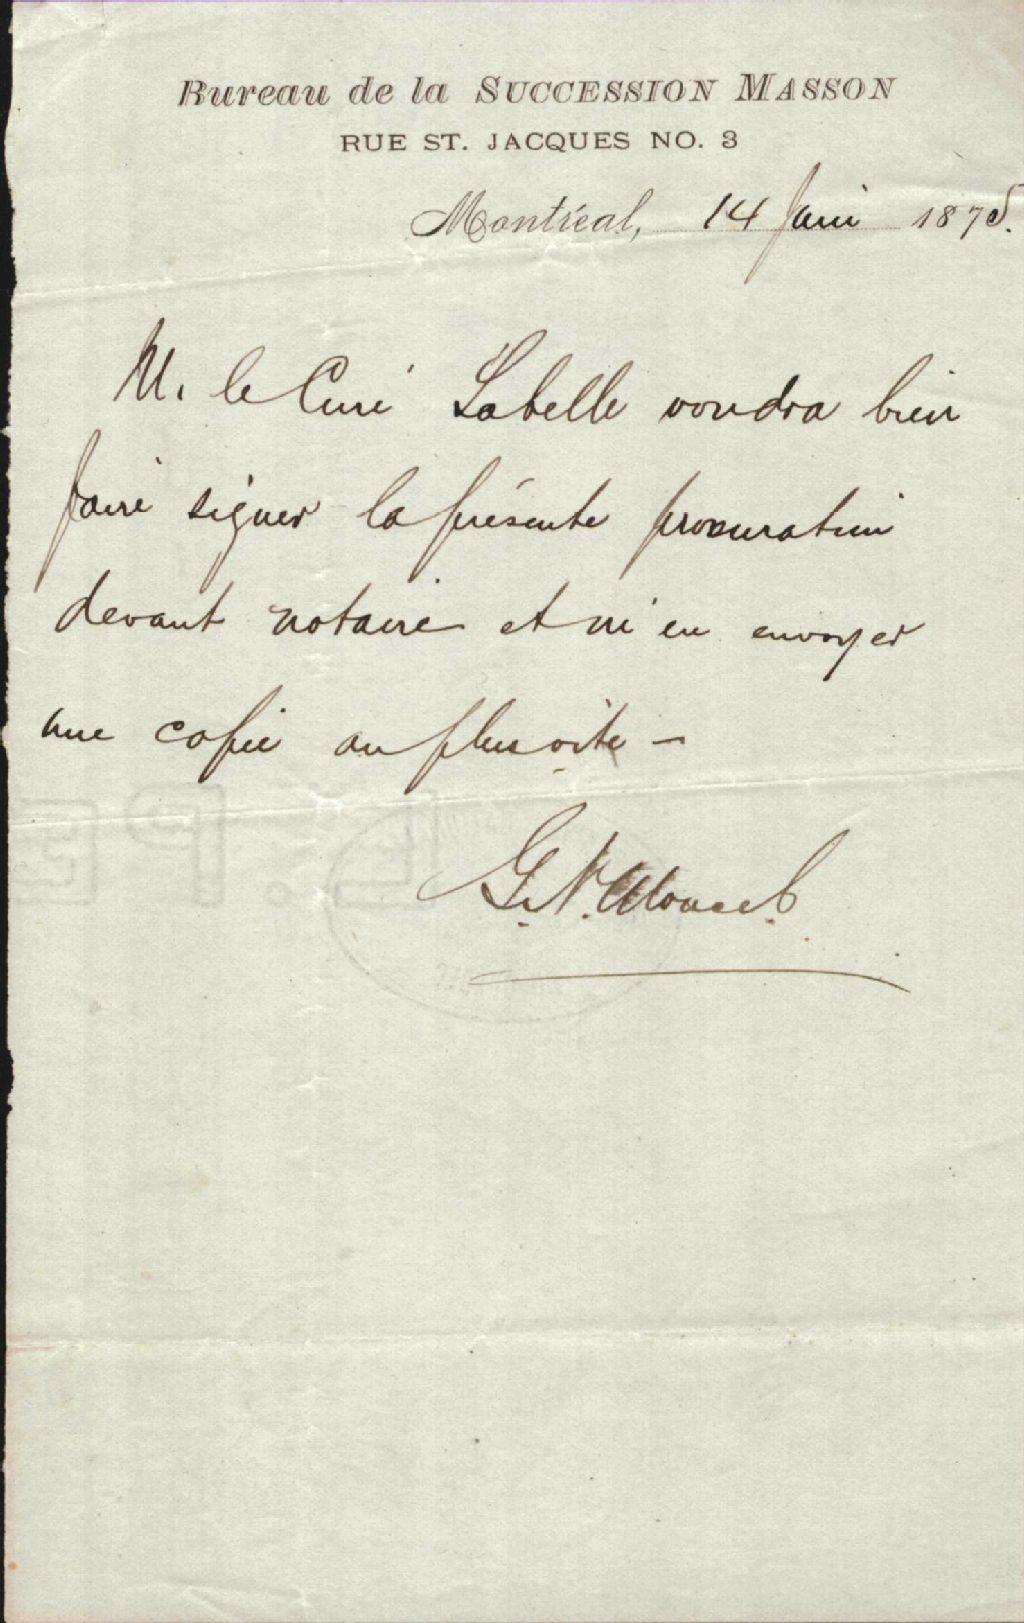 Bureau de la SUCCESSION MASSON
RUE ST. JACQUES NO. 3
Montréal, 14 Juin 1875.
M. le Curé Labelle voudra bien
faire signer la présente procuration
devant notaire et m'en envoyer
une copie au plus vite –